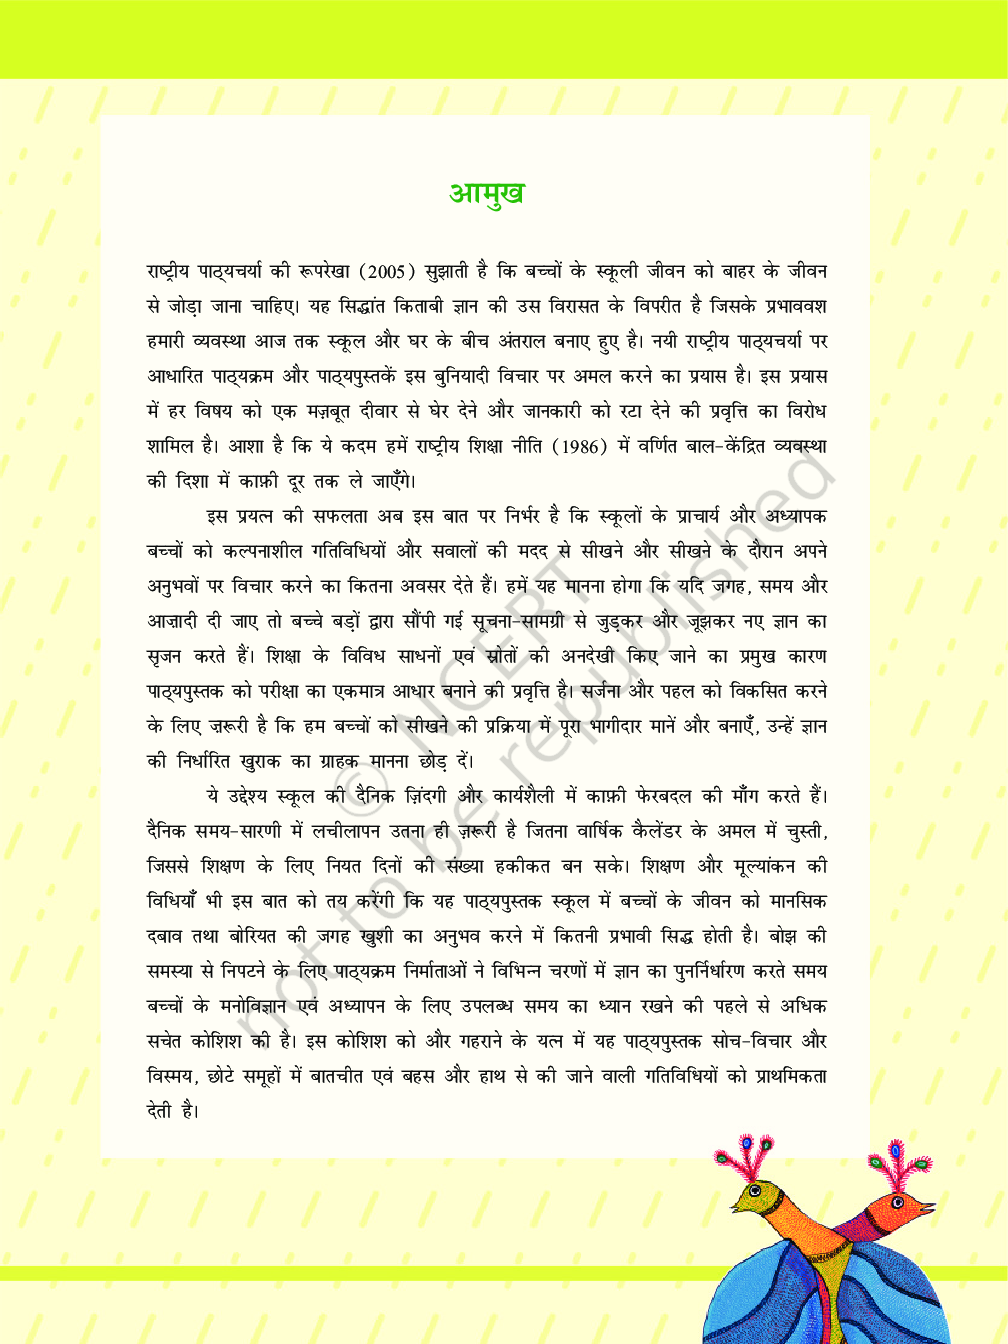 आमुख
राष्ट्रीय पाठ्यचर्या की रूपरेखा (2005) सुझाती है कि बच्चों के स्कूली जीवन को बाहर के जीवन
से जोड़ा जाना चाहिए। यह सिद्धांत किताबी ज्ञान की उस विरासत के विपरीत है जिसके प्रभाववश
हमारी व्यवस्था आज तक स्कूल और घर के बीच अंतराल बनाए हुए है। नयी राष्ट्रीय पाठ्यचर्या पर
आधारित पाठ्यक्रम और पाठ्यपुस्तकें इस बुनियादी विचार पर अमल करने का प्रयास है। इस प्रयास
में हर विषय को एक मज़बूत दीवार से घेर देने और जानकारी को रटा देने की प्रवृत्ति का विरोध
शामिल है। आशा है कि ये कदम हमें राष्ट्रीय शिक्षा नीति (1986) में वर्णित बाल-केंद्रित व्यवस्था
की दिशा में काफ़ी दूर तक ले जाएँगे।
इस प्रयत्न की सफलता अब इस बात पर निर्भर है कि स्कूलों के प्राचार्य और अध्यापक
बच्चों को कल्पनाशील गतिविधियों और सवालों की मदद से सीखने और सीखने के दौरान अपने
अनुभवों पर विचार करने का कितना अवसर देते हैं। हमें यह मानना होगा कि यदि जगह, समय और
आज़ादी दी जाए तो बच्चे बड़ों द्वारा सौंपी गई सूचना-सामग्री से जुड़कर और जूझकर नए ज्ञान का
सृजन करते हैं। शिक्षा के विविध साधनों एवं स्रोतों की अनदेखी किए जाने का प्रमुख कारण
पाठ्यपुस्तक को परीक्षा का एकमात्र आधार बनाने की प्रवृत्ति है। सर्जना और पहल को विकसित करने
के लिए ज़रूरी है कि हम बच्चों को सीखने की प्रक्रिया में पूरा भागीदार मानें और बनाएँ, उन्हें ज्ञान
की निर्धारित खुराक का ग्राहक मानना छोड़ दें।
ये उद्देश्य स्कूल की दैनिक ज़िंदगी और कार्यशैली में काफ़ी फेरबदल की माँग करते हैं।
दैनिक समय-सारणी में लचीलापन उतना ही ज़रूरी है जितना वार्षिक कैलेंडर के अमल में चुस्ती,
जिससे शिक्षण के लिए नियत दिनों की संख्या हकीकत बन सके। शिक्षण और मूल्यांकन की
विधियाँ भी इस बात को तय करेंगी कि यह पाठ्यपुस्तक स्कूल में बच्चों के जीवन को मानसिक
दबाव तथा बोरियत की जगह खुशी का अनुभव करने में कितनी प्रभावी सिद्ध होती है। बोझ की
समस्या से निपटने के लिए पाठ्यक्रम निर्माताओं ने विभिन्न चरणों में ज्ञान का पुनर्निर्धारण करते समय
बच्चों के मनोविज्ञान एवं अध्यापन के लिए उपलब्ध समय का ध्यान रखने की पहले से अधिक
सचेत कोशिश की है। इस कोशिश को और गहराने के यत्न में यह पाठ्यपुस्तक सोच-विचार और
विस्मय, छोटे समूहों में बातचीत एवं बहस और हाथ से की जाने वाली गतिविधियों को प्राथमिकता
देती है।
© NCERT
not to be republished